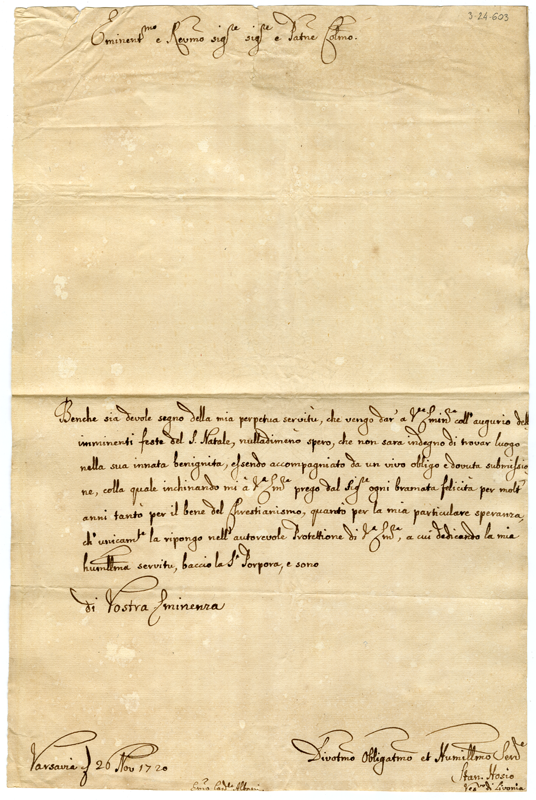 3-24-603
Eminent.mo e Revmo sigre sigre e Patne Colmo.
Benche sia devole segno della mia perpetua servitù, che vengo dar' a Vra Eminza coll' augurio dell
imminenti feste del S. Natale, nulladimeno spero, che non sara indegno di trovar luogo
nella sua innata benignita, essendo accompagniato da un vivo obligo e dovuta submissio
ne, colla quale inchinando mi à Vra Emza prego dal Sigre ogni bramata felicità per molt'
anni tanto per il bene del Chrestianismo, quanto per la mia particulare speranza,
ch' unicamte la ripongo nell' autorevole Protettione di Vra Emza, a cui dedicando la mia
humillma servitu, baccio la Sa Porpora, e sono
di Vostra Eminenza
Varsavia 26 Nov 1720
Divotmo Obligatmo et Humillmo Serve
Stan. Hosio
di Livonia